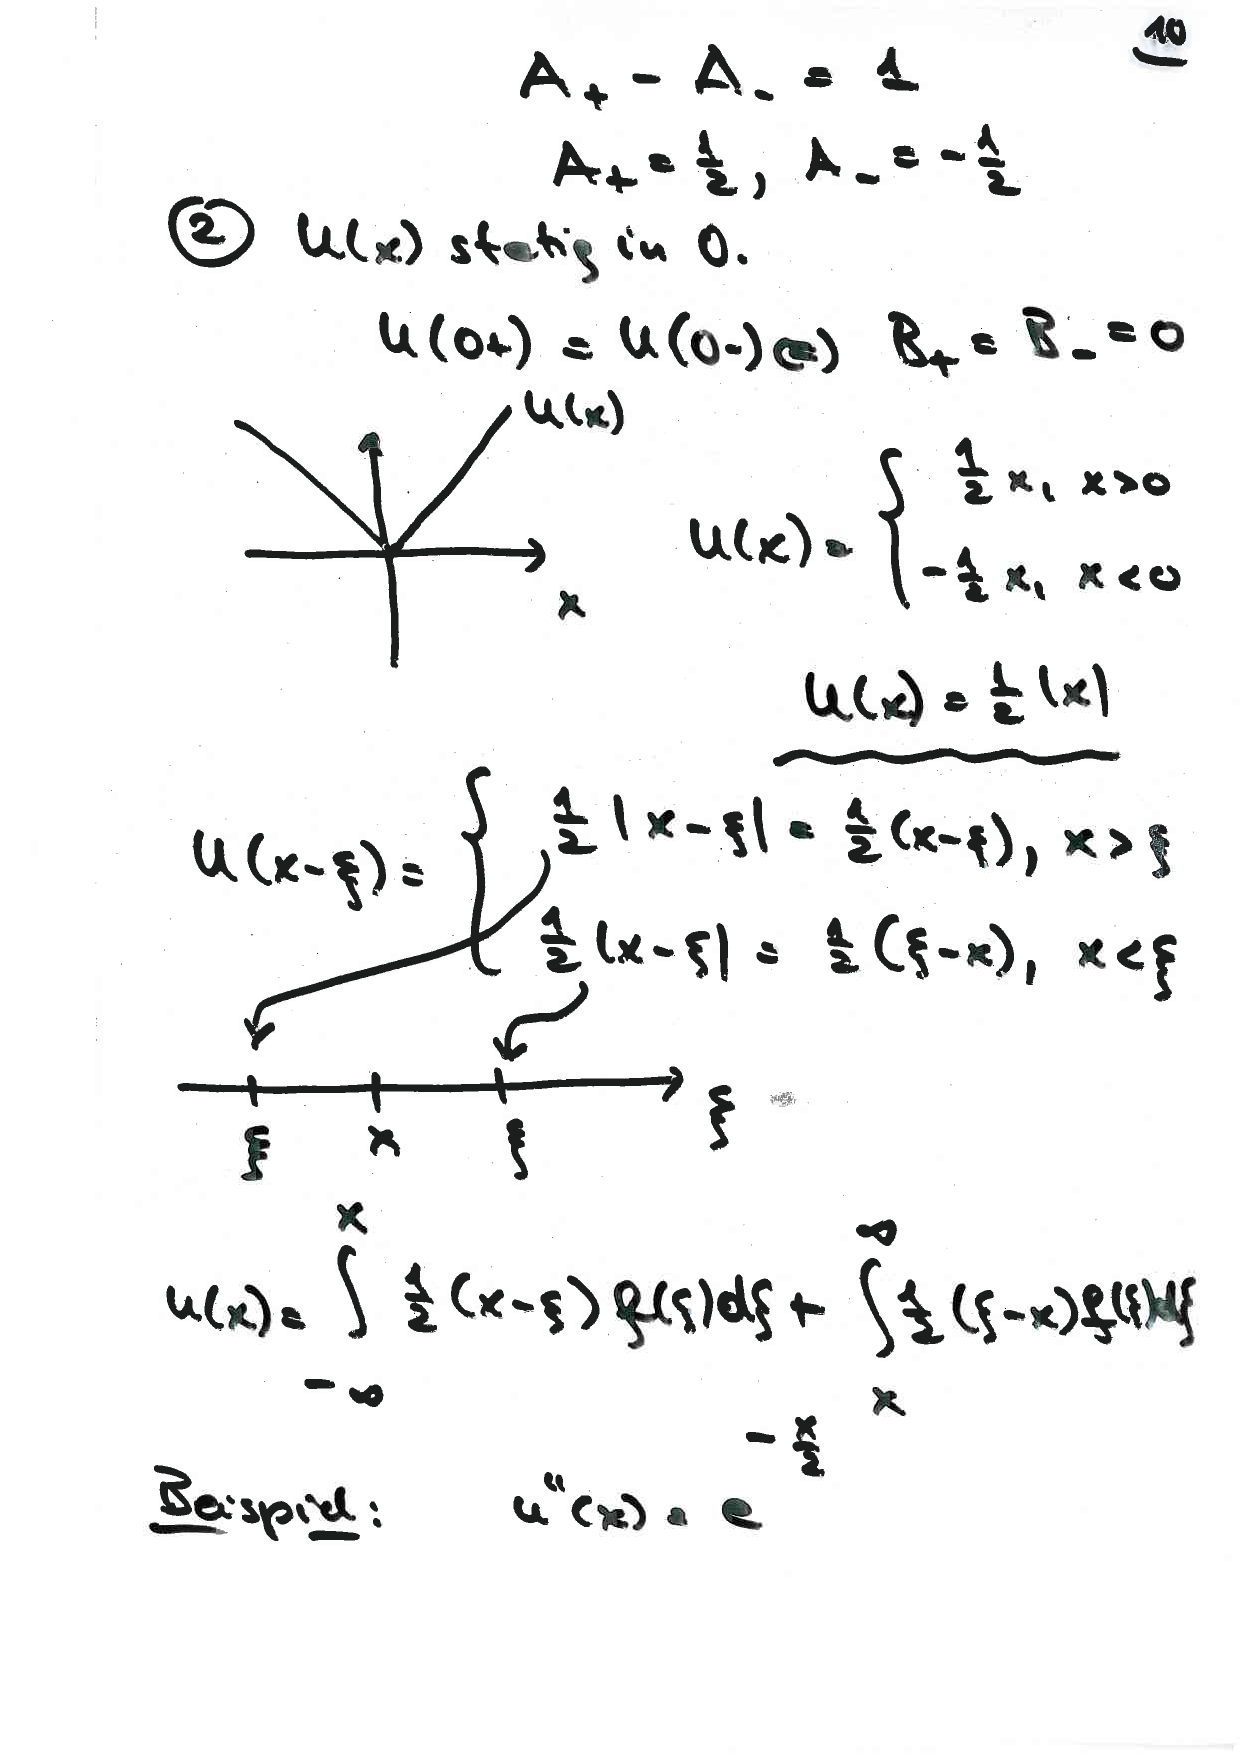 10
A₊ - A₋ = 1
A₊ = 1/2, A₋ = -1/2
② U(x) stetig in 0.
U(0+) = U(0-) (=) B₊ = B₋ = 0
U(x)
x
U(x) = { 1/2 x, x>0
-1/2 x, x<0
U(x) = 1/2 |x|
U(x-ξ) = { 1/2 |x-ξ| = 1/2 (x-ξ), x > ξ
1/2 |x-ξ| = 1/2 (ξ-x), x < ξ
ξ x ξ ξ
u(x) = ∫_{-∞}^{x} 1/2 (x-ξ) f(ξ)dξ + ∫_{x}^{∞} 1/2 (ξ-x) f(ξ)dξ
Beispiel: u''(x) = e^{-x/2}